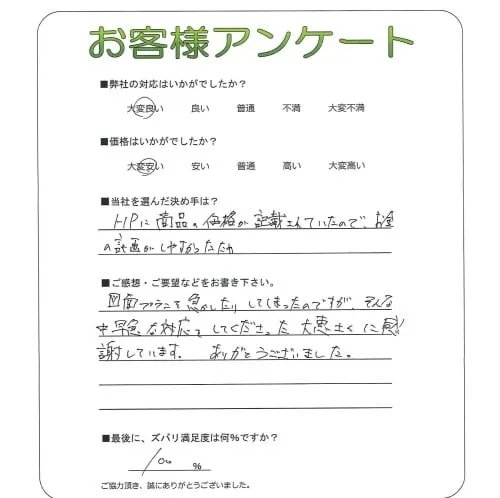 お客様アンケート
■弊社の対応はいかがでしたか?
大変良い 良い 普通 不満 大変不満
■価格はいかがでしたか?
大変安い 安い 普通 高い 大変高い
■当社を選んだ決め手は?
HPに商品の価格が記載されていたので、お金
の計画がしやすかったため
■ご感想・ご要望などをお書き下さい。
図面プランを急かしたりしてしまったのですが、そんな
中早急な対応をしてくださった大恵さくに感
謝しています。 ありがとうございました。
■最後に、ズバリ満足度は何%ですか?
100 %
ご協力頂き、誠にありがとうございました。